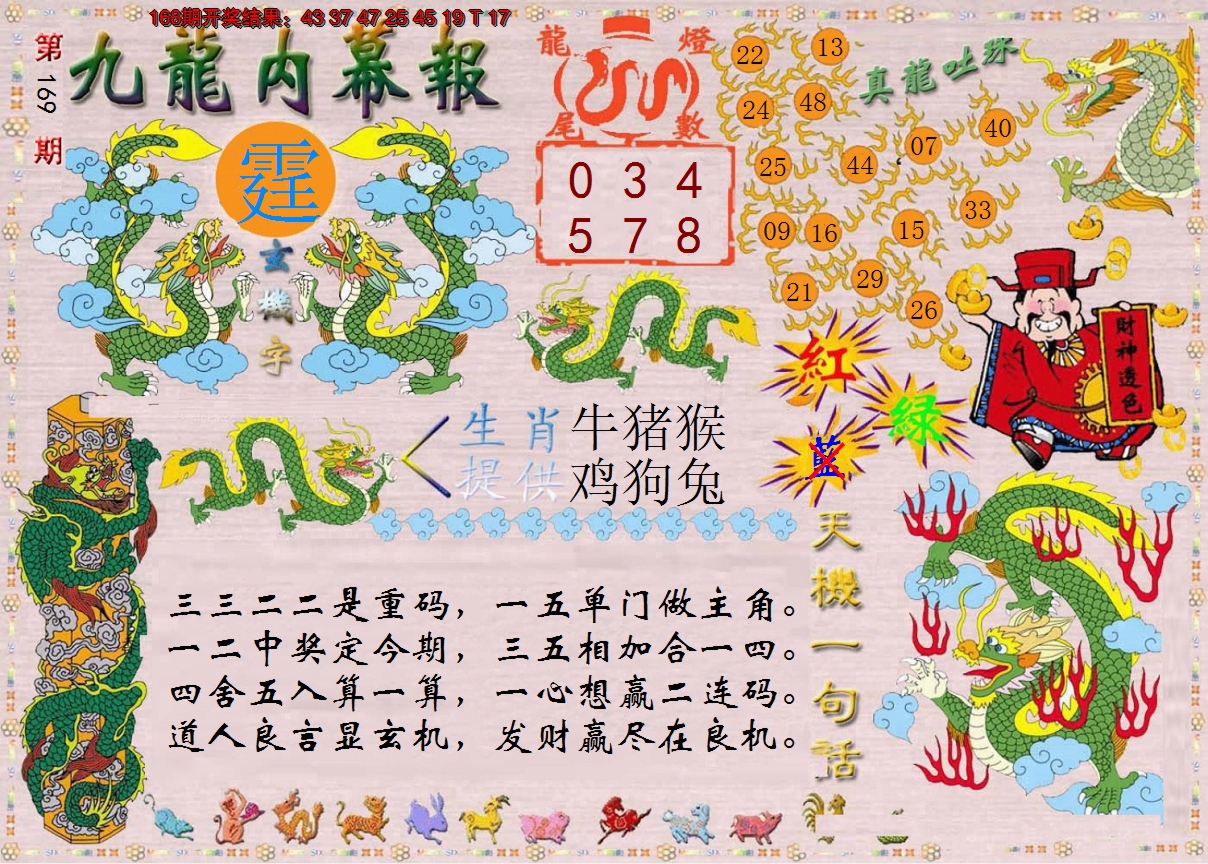 168期开奖结果：43 37 47 25 45 19 T 17
第169期
九龍内幕報
霆
玄機字
龍燈尾數
0 3 4
5 7 8
真龍吐珠
22 13
24 48
07 40
25 44
09 16 15 33
21 29 26
財神透色
紅
綠
藍
生肖 牛猪猴
提供 鸡狗兔
天機一句話
三三二二是重码，一五单门做主角。
一二中奖定今期，三五相加合一四。
四舍五入算一算，一心想赢二连码。
道人良言显玄机，发财赢尽在良机。